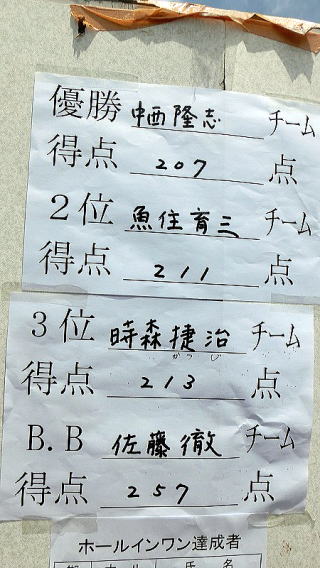 優勝 中西隆志 チーム
得点 207 点
2位 魚住育三 チーム
得点 211 点
3位 時森捷治 チーム
かつじ
得点 213 点
B.B 佐藤徹 チーム
得点 257 点
ホールインワン達成者
ホール 氏名